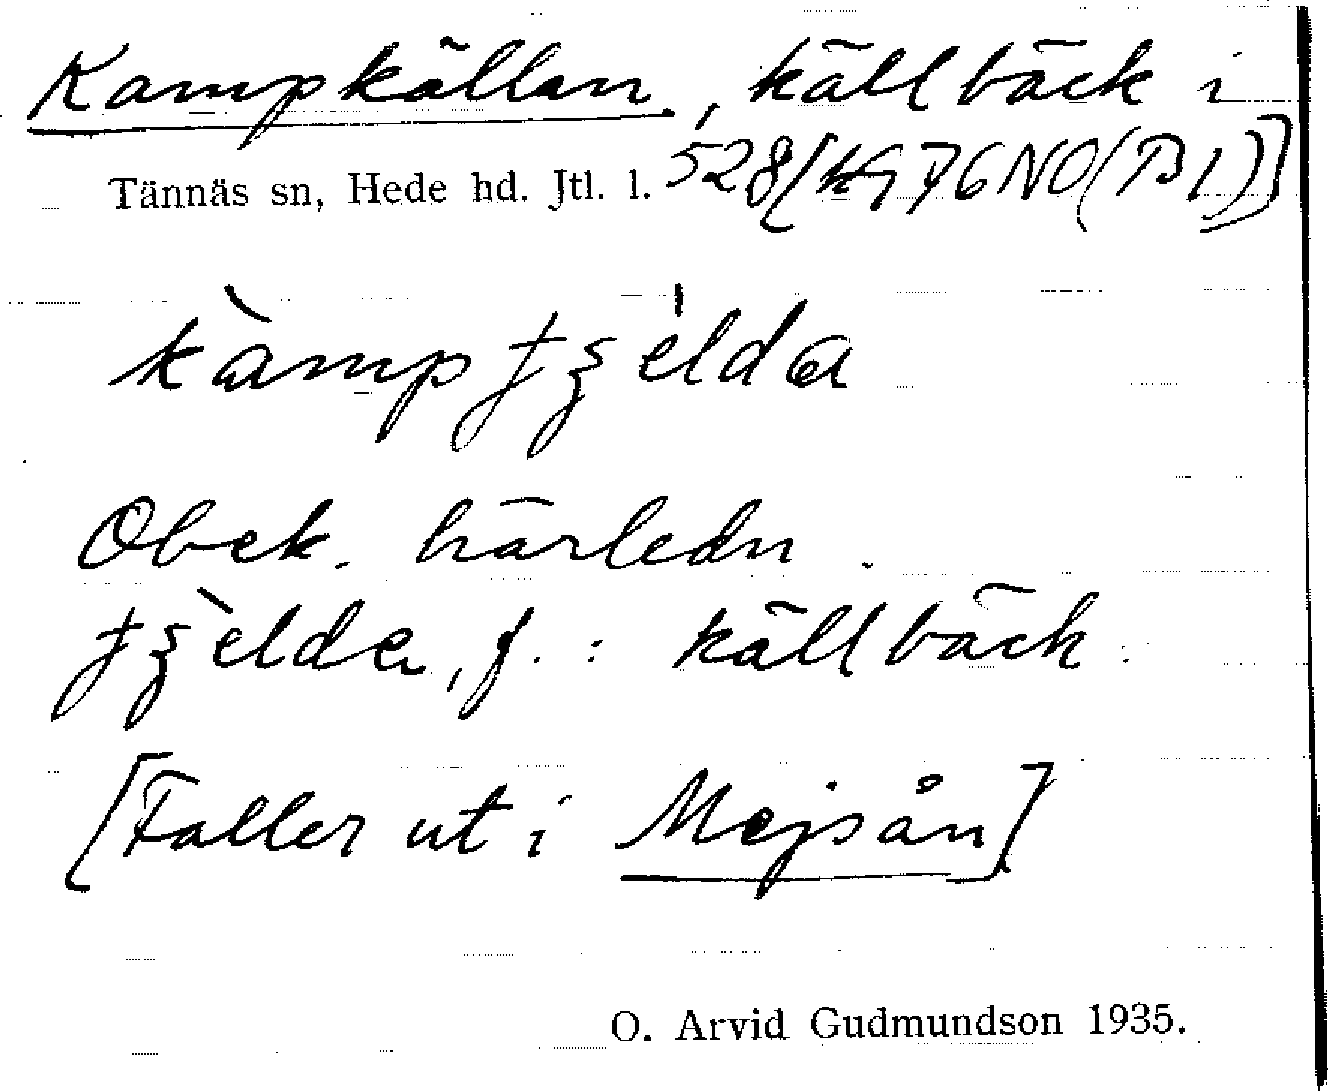 Kampkällan, källbäck i
Tännäs sn, Hede hd. Jtl. l. 528 [kg 76 NO (B1)]
kàmpfʒélda
Obek. härledn.
fʒèlda, f.: källbäck.
[Faller ut i Mejsån]
O. Arvid Gudmundson 1935.